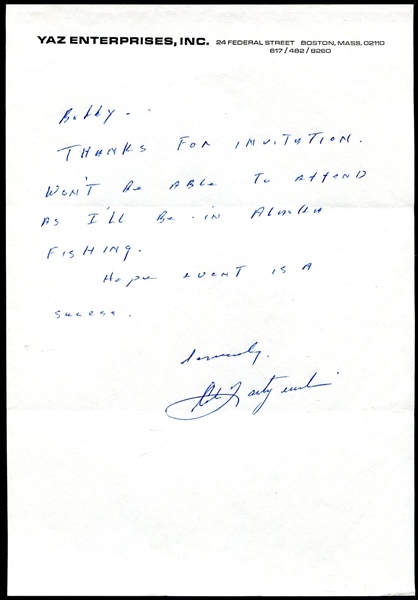 YAZ ENTERPRISES, INC. 24 FEDERAL STREET BOSTON, MASS. 02110
617/482/8260
Bobby..
THANKS FOR INVITATION.
WON'T Be ABLE To ATTEND
AS I'LL Be IN Alaska
FISHING.
Hope EVENT IS A
success.
Sincerely,
Carl Yastrzemski